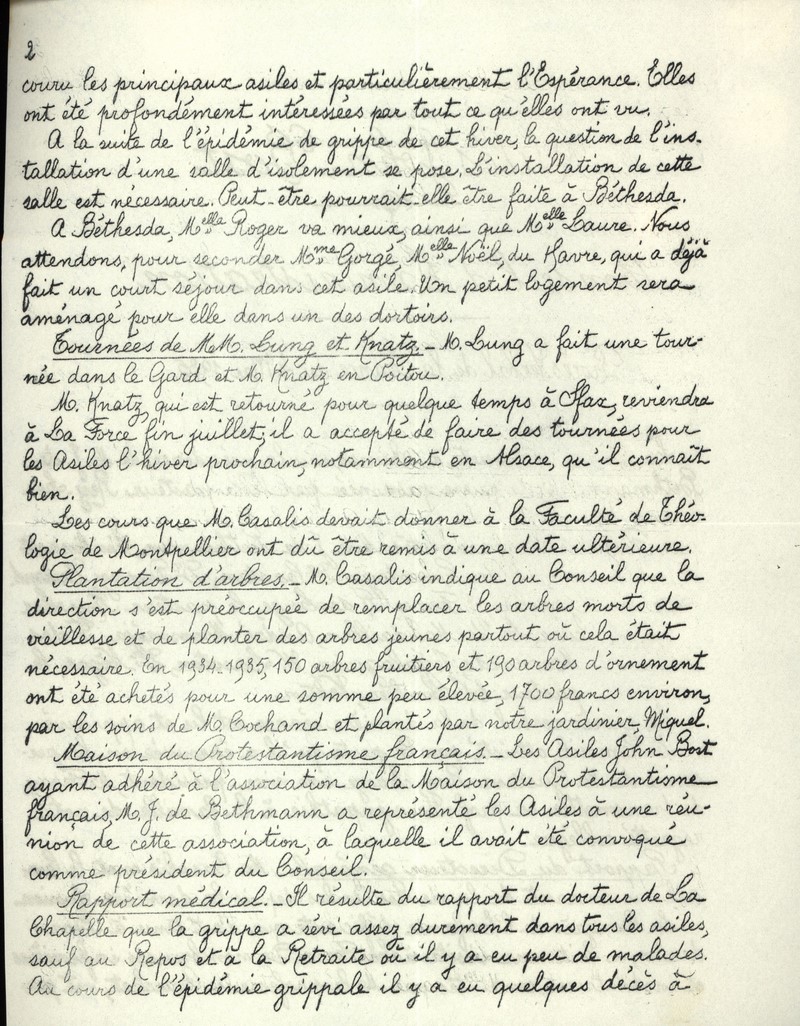 2
couru les principaux asiles et particulièrement l'Espérance. Elles
ont été profondément intéressées par tout ce qu'elles ont vu.
A la suite de l'épidémie de grippe de cet hiver, la question de l'ins-
tallation d'une salle d'isolement se pose. L'installation de cette
salle est nécessaire. Peut-être pourrait-elle être faite à Béthesda.
A Béthesda, Melle Roger va mieux, ainsi que Melle Laure. Nous
attendons, pour seconder Mme Gorgé, Melle Noël, du Havre, qui a déjà
fait un court séjour dans cet asile. Un petit logement sera
aménagé pour elle dans un des dortoirs.
Tournées de MM. Lung et Knatz. - M. Lung a fait une tour-
née dans le Gard et M. Knatz en Poitou.
M. Knatz, qui est retourné pour quelque temps à Sfax, reviendra
à La Force fin juillet; il a accepté de faire des tournées pour
les Asiles l'hiver prochain, notamment en Alsace, qu'il connaît
bien.
Les cours que M. Casalis devait donner à la Faculté de Théo-
logie de Montpellier ont dû être remis à une date ultérieure.
Plantation d'arbres. - M. Casalis indique au Conseil que la
direction s'est préoccupée de remplacer les arbres morts de
vieillesse et de planter des arbres jeunes partout où cela était
nécessaire. En 1934-1935, 150 arbres fruitiers et 190 arbres d'ornement
ont été achetés pour une somme peu élevée, 1700 francs environ,
par les soins de M. Cochand et plantés par notre jardinier, Miquel.
Maison du Protestantisme français. - Les Asiles John Bost
ayant adhéré à l'association de la Maison du Protestantisme
français, M. J. de Bethmann a représenté les Asiles à une réu-
nion de cette association, à laquelle il avait été convoqué
comme président du Conseil.
Rapport médical. - Il résulte du rapport du docteur de La
Chapelle que la grippe a sévi assez durement dans tous les asiles,
sauf au Repos et à la Retraite où il y a eu peu de malades.
Au cours de l'épidémie grippale il y a eu quelques décès à